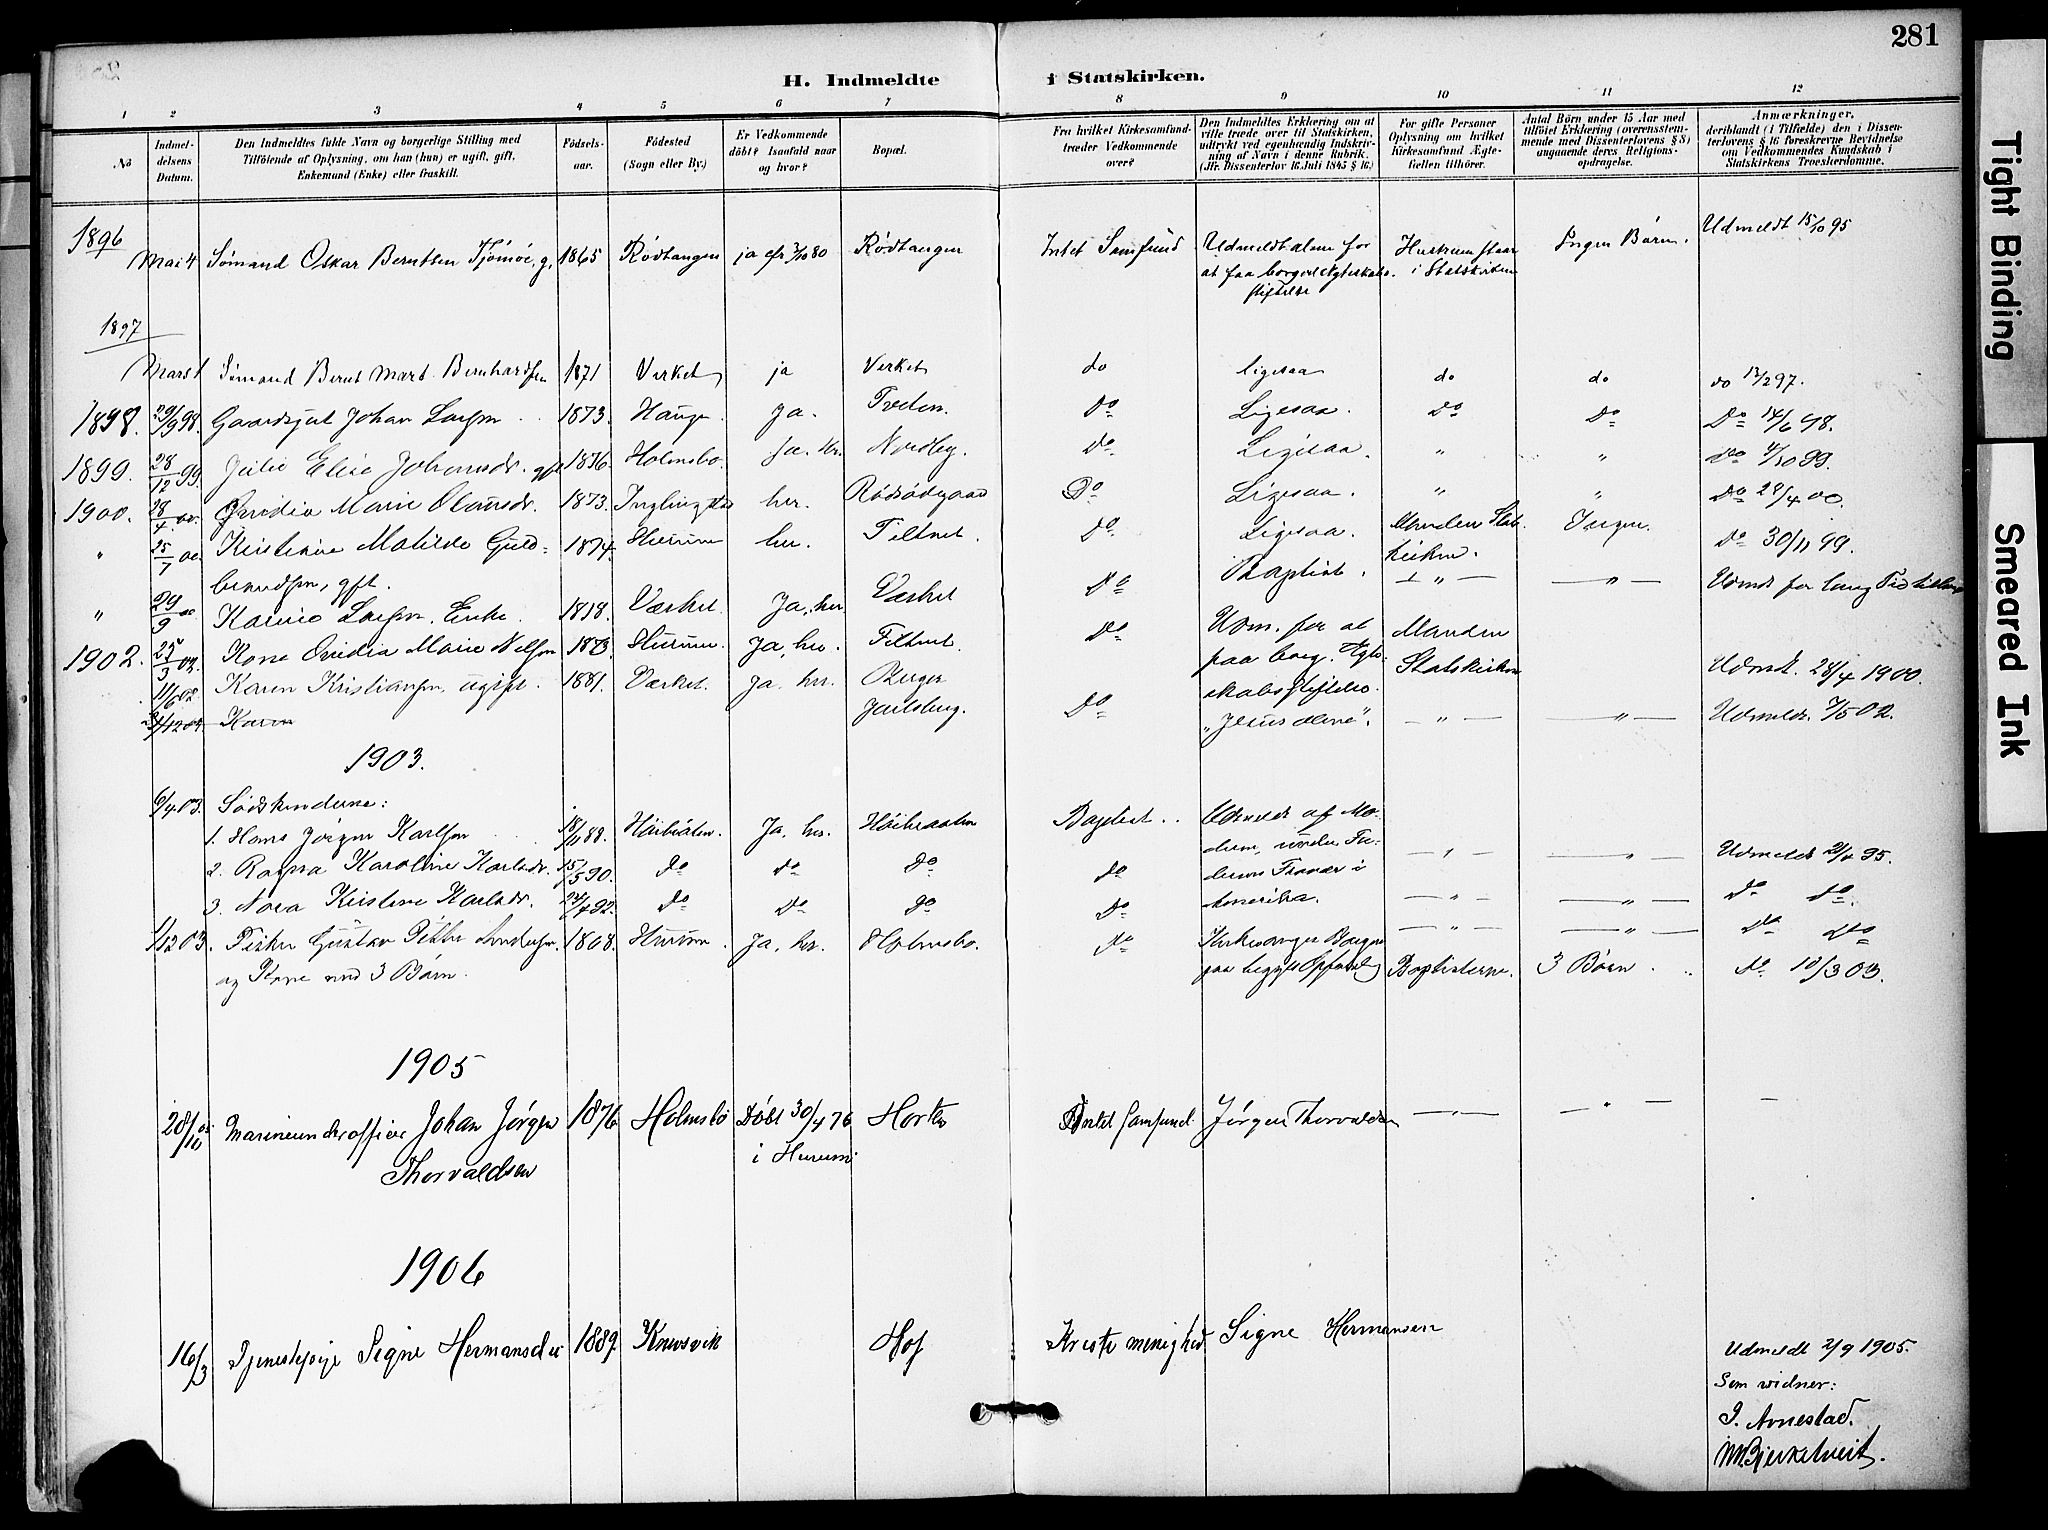 281
H. Indmeldte i Statskirken.
1 2 3 4 5 6 7 8 9 10 11 12
No
Indmel-
delsens
Datum.
Den Indmeldtes fulde Navn og borgerlige Stilling med
Tilføiende af Oplysning, om han (hun) er ugift, gift,
Enkemand (Enke) eller fraskilt.
Fødsels-
aar.
Fødested
(Sogn eller By.)
Er Vedkommende
døbt? Isaafald naar
og hvor?
Bopæl.
Fra hvilket Kirkesamfund
træder Vedkommende
over?
Den Indmeldtes Erklæring om at
ville træde over til Statskirken,
udtrykt ved egenhændig Indskriv-
ning af Navn i denne Rubrik.
(Jfr. Dissenterlov 16. Juli 1845 § 16.)
For gifte Personer
Oplysning om hvilket
Kirkesamfund Ægte-
fællen tilhører.
Antal Børn under 15 Aar med
tilføiet Erklæring (overensstem-
mende med Dissenterlovens § 8)
angaaende deres Religions-
opdragelse.
Anmærkninger,
deriblandt (i Tilfælde) den i Dissen-
terlovens § 16 foreskrevne Bevidnelse
om Vedkommendes Kundskab i
Statskirkens Troeslærdomme.
1896
Mai 4 Sømand Oskar Berntsen Tjømøe, g. 1865 Rødtangen ja 3/10 80 Rødtangen Intet Samfund Udmeldt alene for Hustruen staar Ingen Børn. Udmeldt 15/10 95
at faa borgerl Ægteskabs- i Statskirken
stiftelse
1897
Mars 1 Sømand Bernt Mart. Bernhardsen 1871 Verket ja Verket do ligesaa do do do 13/2 97.
1898. 29/9 98. Gaardsjut Johan Larsen 1873. Hauge ja. Tveten. Do Ligesaa. Do Do Do 14/6 98.
1899. 28/12 99. Julie Elise Johansdr. gft 1876. Holmsbo. Ja. hr. Nordby. Do Ligesaa. " " Do 4/10 99.
1900. 28/4 00. Ovidia Marie Olausdr. 1873. her. Do Ligesaa. " " Do 28/4 00.
" 25/7 00 Kristiane Matilde Guld- 1874. Hurum her. Filtvet. Do Ligesaa. Manden Stats- Ingen. Do 30/11 99.
brandsen, gft. kirken.
" 29/9 00 Karine Larsen, Enke. 1818. Værket. Ja, her Værket Do Baptist. " "
1902. 25/3 02. Kone Ovidia Marie Nilsen 1873. Hurum Ja, her. Filtvet Do Udm. for at Manden
faa borg. Ægte- Statskirken Udmeldt. 28/4 1900.
11/6 02. Karen Kristiansen, ugift. 1881. Værket. Ja, her. Berger skabsstiftelse.
Karen Jarlsberg. Do "Jesus alene". " " Udmeldt 7/5 02.
1903.
6/4 03. Sødskenderne:
1. Hans Jørgen Karlsen 18/11 88. Høibråten. Ja, her. Høibraaten Baptist. Udmeldt af Mo-
deren, under Fa- " " Udmeldt 2/4 95.
2. Ragna Karoline Karlsdr. 15/5 90. Do Do Do Do derens Fravær i
3. Nora Kristine Karlsdr. 24/4 92. Do Do Do Do Amerika. " " Do Do.
1/12 03. Fisker Gustav Petter Andersen 1868. Hurum. Ja, her. Holmsbo. Do Kirkesanger " " Do Do
og Kone med 3 Børn. Baptisterne. 3 Børn. Do 10/3 03.
1905
28/10 05 Marineunderofficer Johan Jørgen 1876 Holmsbo Døbt 30/4 76 Horten Intet Samfund. Jørgen Thorvaldsen
Thorvaldsen i Hurum
1906
16/3 Tjenestepige Signe Hermansdr 1889 Knivsvik Hof Kristi menighed Signe Hermansen Udmeldt 2/9 1905.
Som vidner:
I. Arnestad.
M. Bjerketveit.
Tight Binding
Smeared Ink